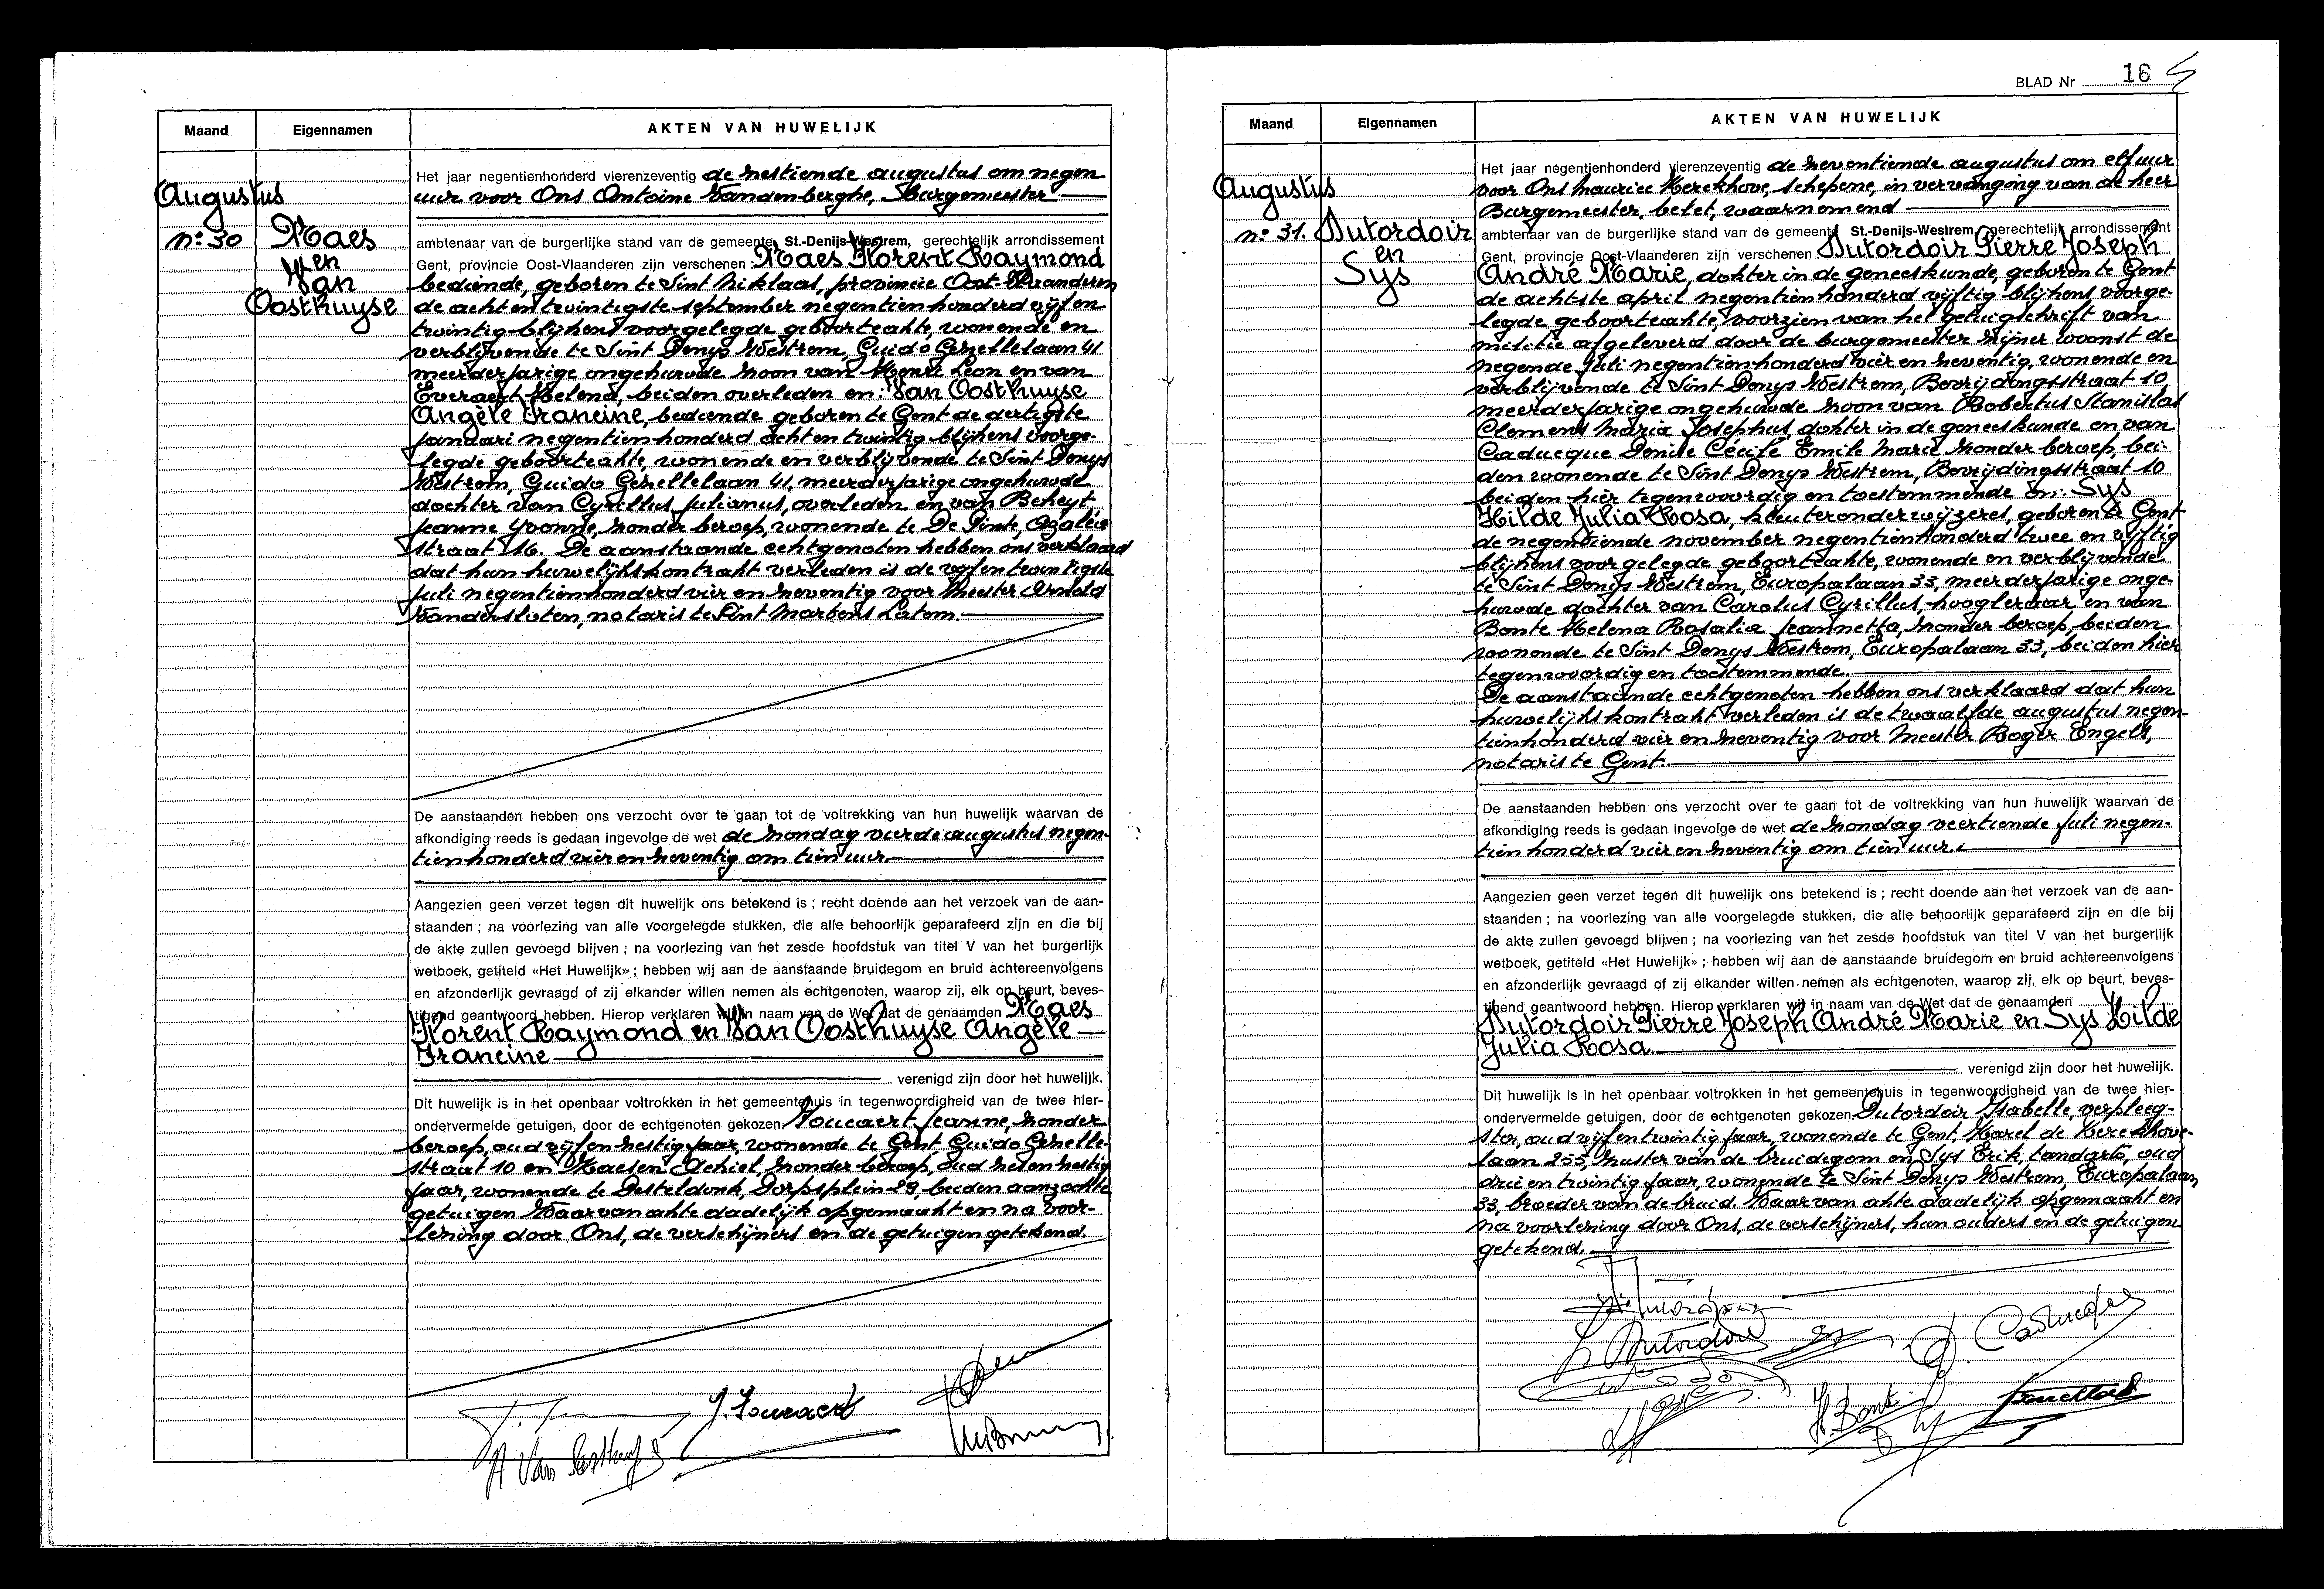 Maand Eigennamen AKTEN VAN HUWELIJK
Augustus
n: 30
Maes
en
Van
Oosthuyse
Het jaar negentienhonderd vierenzeventig de zestiende augustus om negen
uur voor Ons Antoine Vandenberghe, Burgemeester
ambtenaar van de burgerlijke stand van de gemeente St.-Denijs-Westrem, gerechtelijk arrondissement
Gent, provincie Oost-Vlaanderen zijn verschenen : Maes Florent Raymond
bediende, geboren te Sint Niklaas, provincie Oost-Vlaanderen
de acht en twintigste september negentienhonderd vijf en
twintig blijkens voorgelegde geboorteakte, wonende en
verblijvende te Sint Denys Westrem, Guido Gezellelaan 41
meerderjarige ongehuwde zoon van Henri Leon en van
Everaert Helena, beiden overleden en: Van Oosthuyse
Angèle Francine, bediende geboren te Gent de dertigste
januari negentienhonderd acht en twintig blijkens voorge-
legde geboorteakte, wonende en verblijvende te Sint Denys
Westrem, Guido Gezellelaan 41, meerderjarige ongehuwde
dochter van Cyrillus Julianus, overleden en van Beheyt
Jeanne Yvonne, zonder beroep, wonende te De Pinte, Azalea
straat 16. De aanstaande echtgenoten hebben ons verklaard
dat hun huwelijkskontrakt verleden is de vijfentwintigste
juli negentienhonderd vier en zeventig voor Meester Arnold
Vandersloten, notaris te Sint Martens Latem.
De aanstaanden hebben ons verzocht over te gaan tot de voltrekking van hun huwelijk waarvan de
afkondiging reeds is gedaan ingevolge de wet de zondag vierde augustus negen-
tienhonderd vier en zeventig om tien uur.
Aangezien geen verzet tegen dit huwelijk ons betekend is ; recht doende aan het verzoek van de aan-
staanden ; na voorlezing van alle voorgelegde stukken, die alle behoorlijk geparafeerd zijn en die bij
de akte zullen gevoegd blijven ; na voorlezing van het zesde hoofdstuk van titel V van het burgerlijk
wetboek, getiteld «Het Huwelijk» ; hebben wij aan de aanstaande bruidegom en bruid achtereenvolgens
en afzonderlijk gevraagd of zij elkander willen nemen als echtgenoten, waarop zij, elk op beurt, beves-
tigend geantwoord hebben. Hierop verklaren wij in naam van de Wet dat de genaamden Maes
Florent Raymond en Van Oosthuyse Angèle
Francine
verenigd zijn door het huwelijk.
Dit huwelijk is in het openbaar voltrokken in het gemeentehuis in tegenwoordigheid van de twee hier-
ondervermelde getuigen, door de echtgenoten gekozen Foucaert Jeanne, zonder
beroep, oud vijf en zestig jaar, wonende te Gent Guido Gezelle-
straat 10 en Haesen Achiel, zonder beroep, oud zes en zestig
jaar, wonende te Desteldonk, Dorpsplein 29, beiden aanzochte
getuigen Waarvan akte dadelijk opgemaakt en na voor-
lezing door Ons, de verschijners en de getuigen getekend.
J. Foucaert
A Van Oosthuyse
BLAD Nr 16
Maand Eigennamen AKTEN VAN HUWELIJK
Augustus
n: 31.
Dutordoir
en
Sys
Het jaar negentienhonderd vierenzeventig de zeventiende augustus om elf uur
voor Ons Maurice Kerckhove, schepene, in vervanging van de heer
Burgemeester, belet, waarnemend
ambtenaar van de burgerlijke stand van de gemeente St.-Denijs-Westrem, gerechtelijk arrondissement
Gent, provincie Oost-Vlaanderen zijn verschenen : Dutordoir Pierre Joseph
André Marie, dokter in de geneeskunde, geboren te Gent
de achtste april negentienhonderd vijftig blijkens voorge-
legde geboorteakte, voorzien van het getuigschrift van
militie afgeleverd door de burgemeester zijner woonst de
negende juli negentienhonderd vier en zeventig, wonende en
verblijvende te Sint Denys Westrem, Bevrijdingsstraat 10,
meerderjarige ongehuwde zoon van Robertus Stanislas
Clemens Maria Josephus, dokter in de geneeskunde en van
Caducque Denise Cécile Emile Marie zonder beroep, bei-
den wonende te Sint Denys Westrem, Bevrijdingsstraat 10
beiden hier tegenwoordig en toestemmende en: Sys
Hilde Julia Rosa, kleuteronderwijzeres, geboren te Gent
de negentiende november negentienhonderd twee en vijftig
blijkens voorgelegde geboorteakte, wonende en verblijvende
te Sint Denys Westrem, Europalaan 33, meerderjarige onge-
huwde dochter van Carolus Cyrillus, hoogleraar en van
Bonte Helena Rosalia Jeannetta, zonder beroep, beiden
wonende te Sint Denys Westrem, Europalaan 33, beiden hier
tegenwoordig en toestemmende.
De aanstaande echtgenoten hebben ons verklaard dat hun
huwelijkskontrakt verleden is de twaalfde augustus negen-
tienhonderd vier en zeventig voor Meester Roger Engels,
notaris te Gent.
De aanstaanden hebben ons verzocht over te gaan tot de voltrekking van hun huwelijk waarvan de
afkondiging reeds is gedaan ingevolge de wet de zondag veertiende juli negen-
tienhonderd vier en zeventig om tien uur.
Aangezien geen verzet tegen dit huwelijk ons betekend is ; recht doende aan het verzoek van de aan-
staanden ; na voorlezing van alle voorgelegde stukken, die alle behoorlijk geparafeerd zijn en die bij
de akte zullen gevoegd blijven ; na voorlezing van het zesde hoofdstuk van titel V van het burgerlijk
wetboek, getiteld «Het Huwelijk» ; hebben wij aan de aanstaande bruidegom en bruid achtereenvolgens
en afzonderlijk gevraagd of zij elkander willen nemen als echtgenoten, waarop zij, elk op beurt, beves-
tigend geantwoord hebben. Hierop verklaren wij in naam van de Wet dat de genaamden
Dutordoir Pierre Joseph André Marie en Sys Hilde
Julia Rosa.
verenigd zijn door het huwelijk.
Dit huwelijk is in het openbaar voltrokken in het gemeentehuis in tegenwoordigheid van de twee hier-
ondervermelde getuigen, door de echtgenoten gekozen Dutordoir Isabelle, verpleeg-
ster, oud vijf en twintig jaar, wonende te Gent, Karel de Kerckhove-
laan 255, zuster van de bruidegom en Sys Erik, tandarts, oud
drie en twintig jaar, wonende te Sint Denys Westrem, Europalaan
33, broeder van de bruid. Waarvan akte dadelijk opgemaakt en
na voorlezing door Ons, de verschijners, hun ouders en de getuigen
getekend.
Dutordoir
H. Bonte